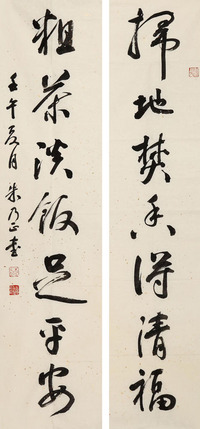 掃地焚香得清福
粗茶淡飯足平安
壬午夏月朱乃正書